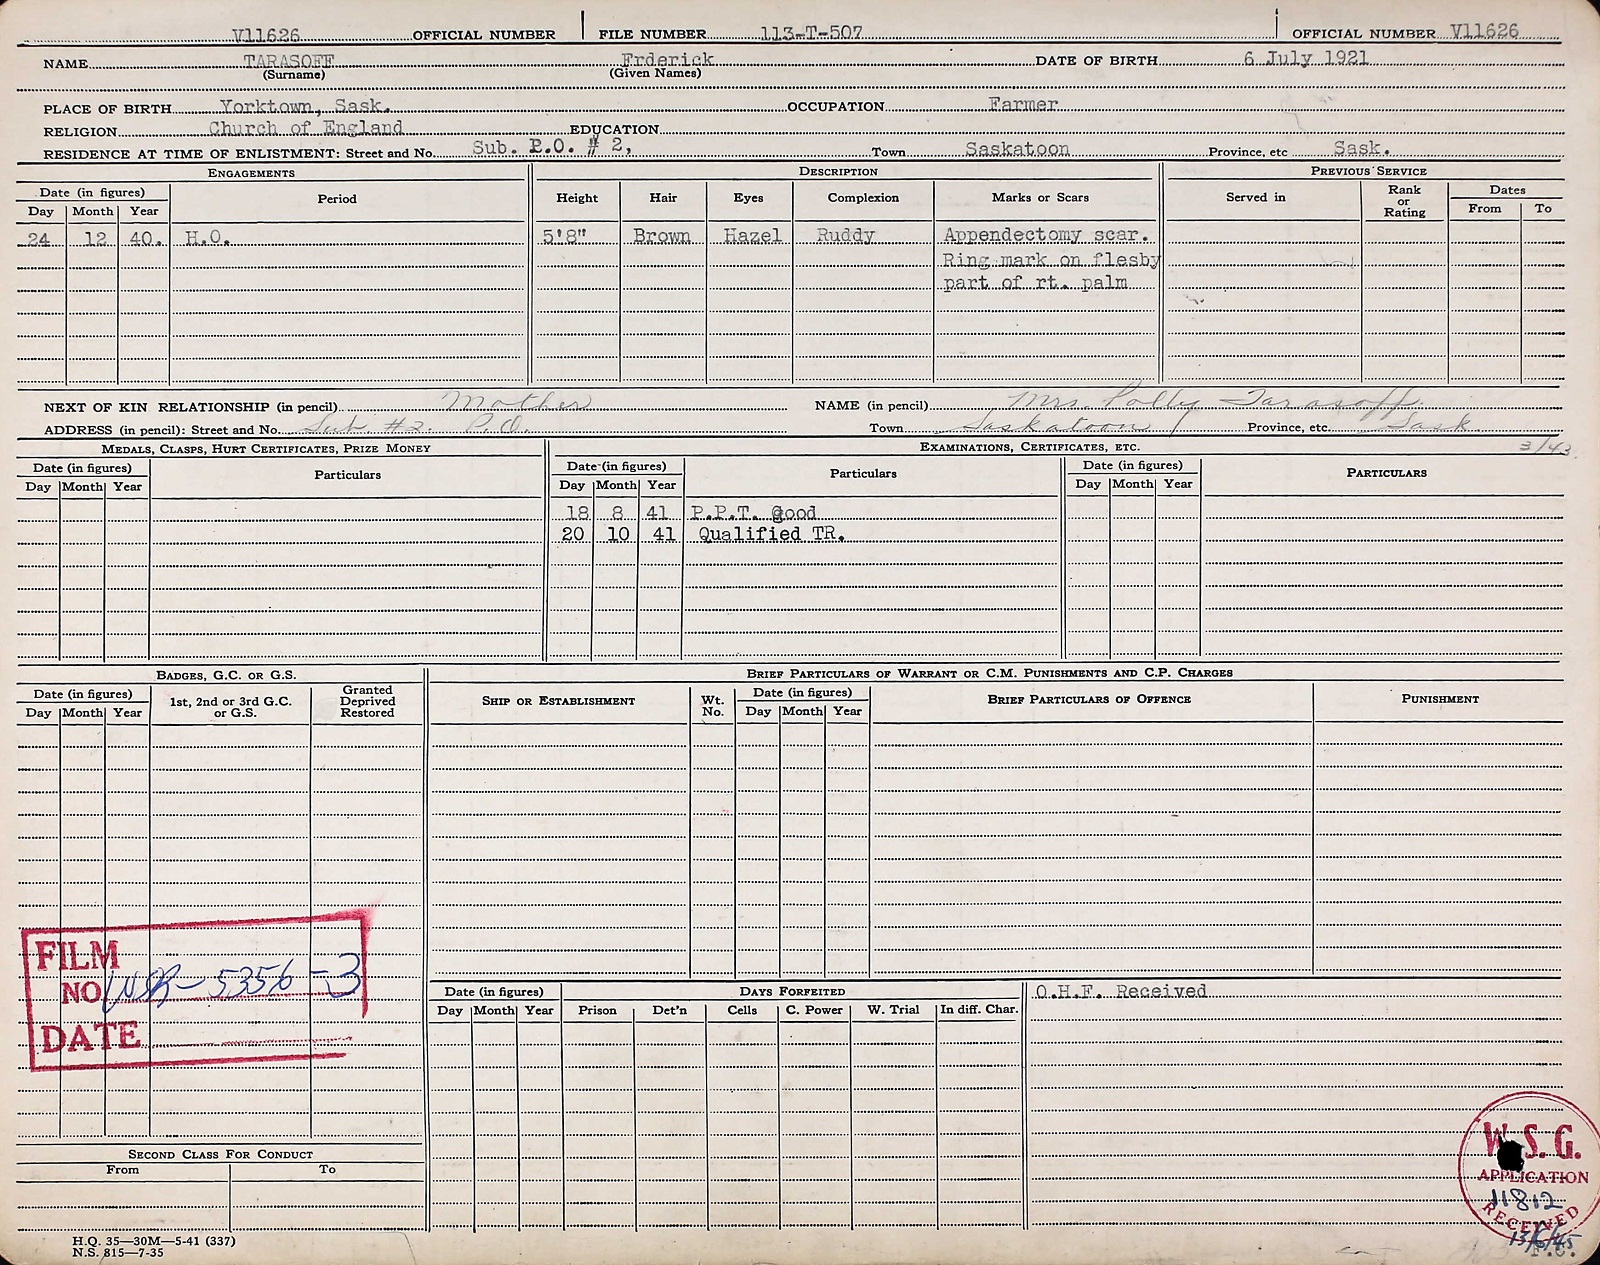 V11626 OFFICIAL NUMBER FILE NUMBER 113-T-507 OFFICIAL NUMBER V11626
NAME TARASOFF Frderick DATE OF BIRTH 6 July 1921
(Surname) (Given Names)
PLACE OF BIRTH Yorktown, Sask. OCCUPATION Farmer
RELIGION Church of England EDUCATION
RESIDENCE AT TIME OF ENLISTMENT: Street and No. Sub. P.O. # 2, Town Saskatoon Province, etc Sask.
ENGAGEMENTS DESCRIPTION PREVIOUS SERVICE
Date (in figures) Period Height Hair Eyes Complexion Marks or Scars Served in Rank or Rating Dates
Day Month Year From To
24 12 40. H.O. 5'8" Brown Hazel Ruddy Appendectomy scar.
Ring mark on flesby
part of rt. palm
NEXT OF KIN RELATIONSHIP (in pencil) Mother NAME (in pencil) Mrs Polly Tarasoff.
ADDRESS (in pencil): Street and No. Sub #2. P.O. Town Saskatoon Province, etc. Sask.
MEDALS, CLASPS, HURT CERTIFICATES, PRIZE MONEY EXAMINATIONS, CERTIFICATES, ETC. 3/43.
Date (in figures) Particulars Date (in figures) Particulars Date (in figures) PARTICULARS
Day Month Year Day Month Year Day Month Year
18 8 41 P.P.T. good
20 10 41 Qualified TR.
BADGES, G.C. OR G.S. BRIEF PARTICULARS OF WARRANT OR C.M. PUNISHMENTS AND C.P. CHARGES
Date (in figures) 1st, 2nd or 3rd G.C. or G.S. Granted Deprived Restored SHIP OR ESTABLISHMENT Wt. No. Date (in figures) BRIEF PARTICULARS OF OFFENCE PUNISHMENT
Day Month Year Day Month Year
FILM
NO 5356-3
DATE
Date (in figures) DAYS FORFEITED O.H.F. Received
Day Month Year Prison Det'n Cells C. Power W. Trial In diff. Char.
W.S.G.
APPLICATION
11812
RECEIVED
13/6/45
F.C.
SECOND CLASS FOR CONDUCT
From To
H.Q. 35—30M—5-41 (337)
N.S. 815—7-35